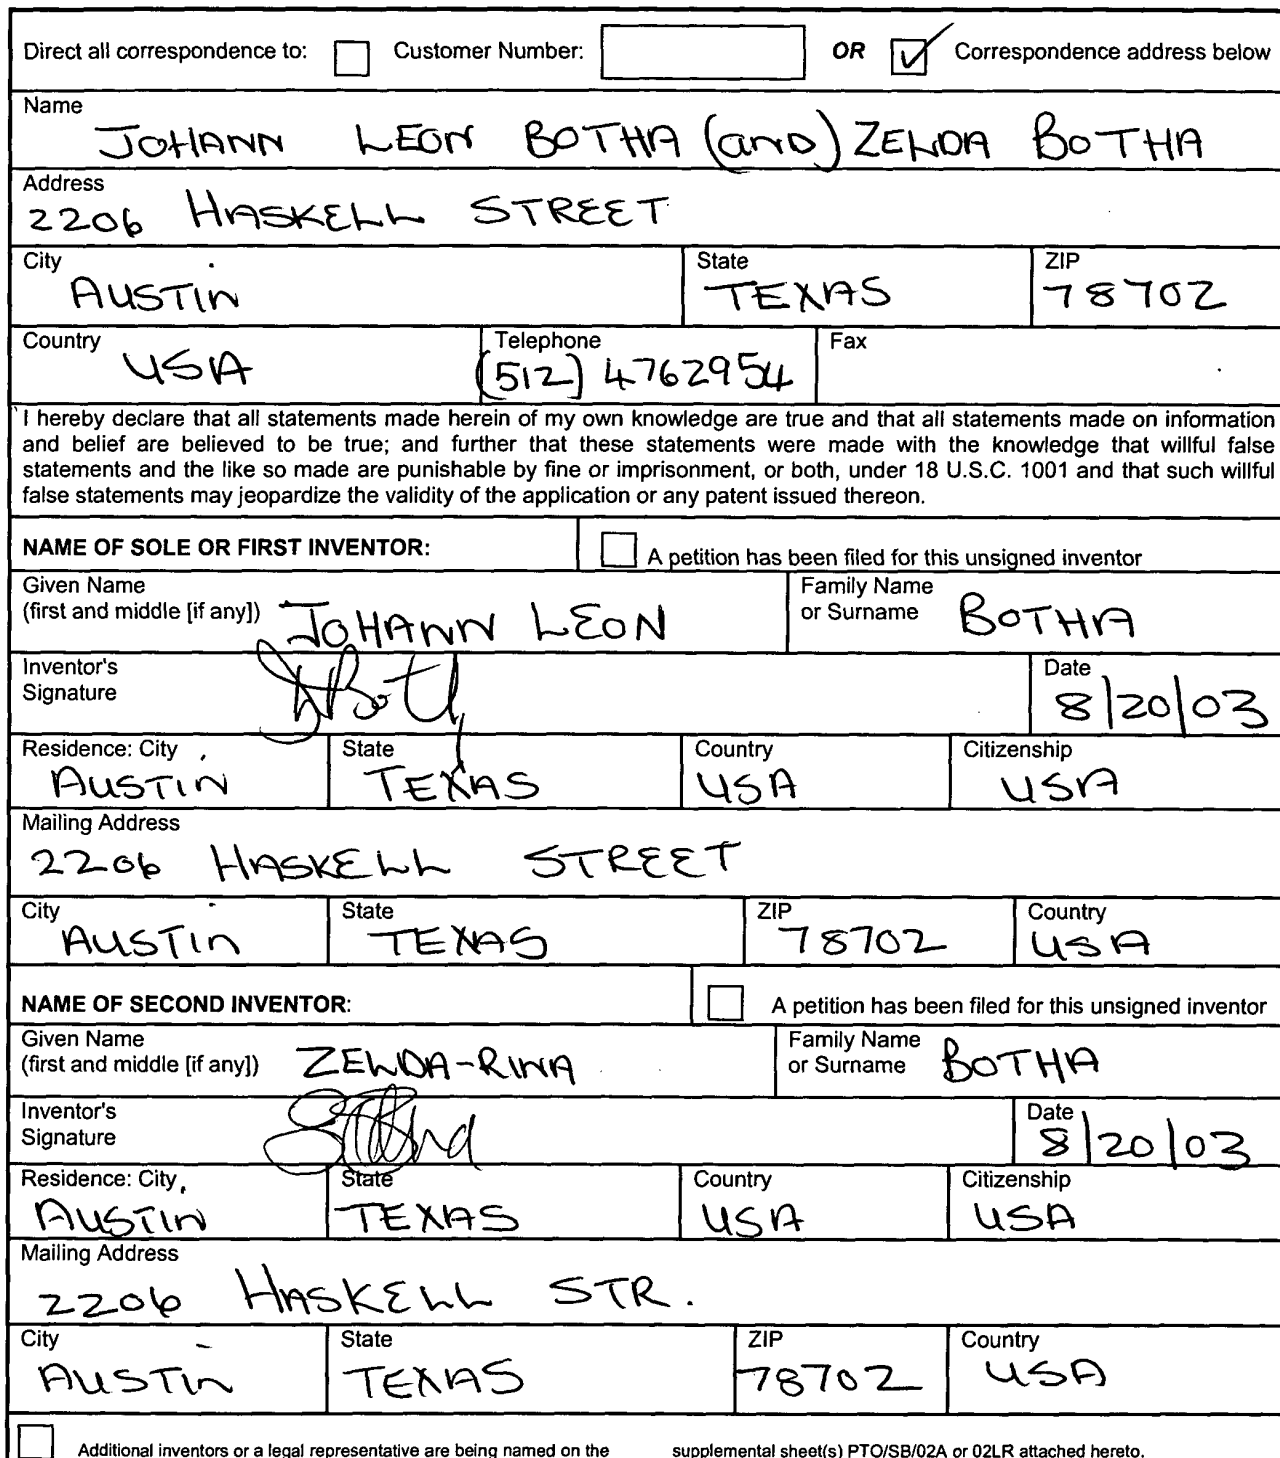 Direct all correspondence to: Customer Number: OR Correspondence address below
Name
JOHANN LEON BOTHA (and) ZELDA BOTHA
Address
2206 HASKELL STREET
City State ZIP
AUSTIN TEXAS 78702
Country Telephone Fax
USA (512) 4762954
I hereby declare that all statements made herein of my own knowledge are true and that all statements made on information
and belief are believed to be true; and further that these statements were made with the knowledge that willful false
statements and the like so made are punishable by fine or imprisonment, or both, under 18 U.S.C. 1001 and that such willful
false statements may jeopardize the validity of the application or any patent issued thereon.
NAME OF SOLE OR FIRST INVENTOR: A petition has been filed for this unsigned inventor
Given Name Family Name
(first and middle [if any]) JOHANN LEON or Surname BOTHA
Inventor's Date
Signature 8/20/03
Residence: City State Country Citizenship
AUSTIN TEXAS USA USA
Mailing Address
2206 HASKELL STREET
City State ZIP Country
AUSTIN TEXAS 78702 USA
NAME OF SECOND INVENTOR: A petition has been filed for this unsigned inventor
Given Name Family Name
(first and middle [if any]) ZELDA-RINA or Surname BOTHA
Inventor's Date
Signature 8/20/03
Residence: City State Country Citizenship
AUSTIN TEXAS USA USA
Mailing Address
2206 HASKELL STR.
City State ZIP Country
AUSTIN TEXAS 78702 USA
Additional inventors or a legal representative are being named on the supplemental sheet(s) PTO/SB/02A or 02LR attached hereto.